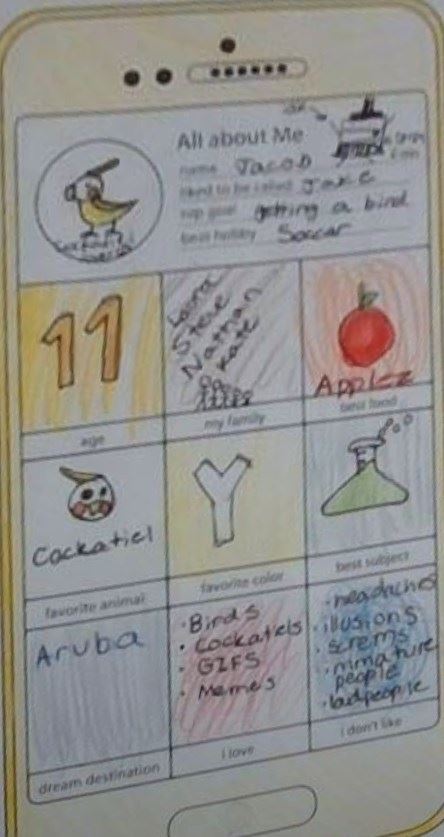 All about Me
name Jacob
liked to be called Jake
top goal getting a bird
best hobby Soccar
11
age
Laura
Steve
Nathan
Kate
my family
Applez
best food
Cockatiel
favorite animal
Y
favorite color
best subject
Aruba
dream destination
• Birds
• Cockatiels
• GIFS
• Memes
I love
• headaches
• illusions
• screms
• immature
people
• bad people
I don't like